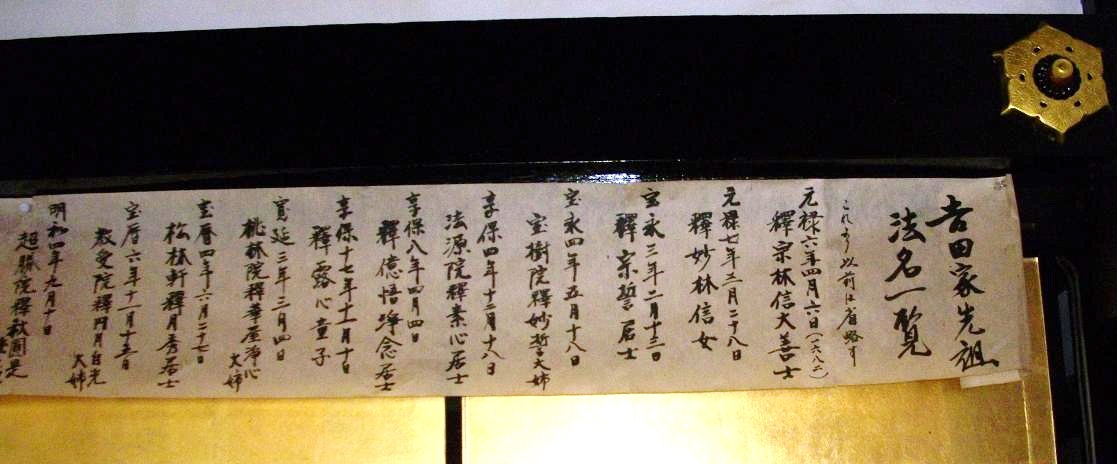 吉田家先祖
法名一覧
これより以前は省略す
元禄六年四月六日(一六八二)
釋宗林信大善士
元禄七年三月二十八日
釋妙林信女
宝永三年二月十三日
釋宗誓居士
宝永四年五月十八日
宝樹院釋妙誓大姉
享保四年十二月十八日
法源院釋素心居士
享保八年四月四日
釋億悟淨念居士
享保十七年十一月十日
釋露心童子
寛延三年三月四日
桃林院釋華屋浄心大姉
宝暦四年六月二十七日
松林軒釋月秀居士
宝暦六年十一月十五日
教受院釋円月自光大姉
明和四年九月十日
超勝院釋秋圓是